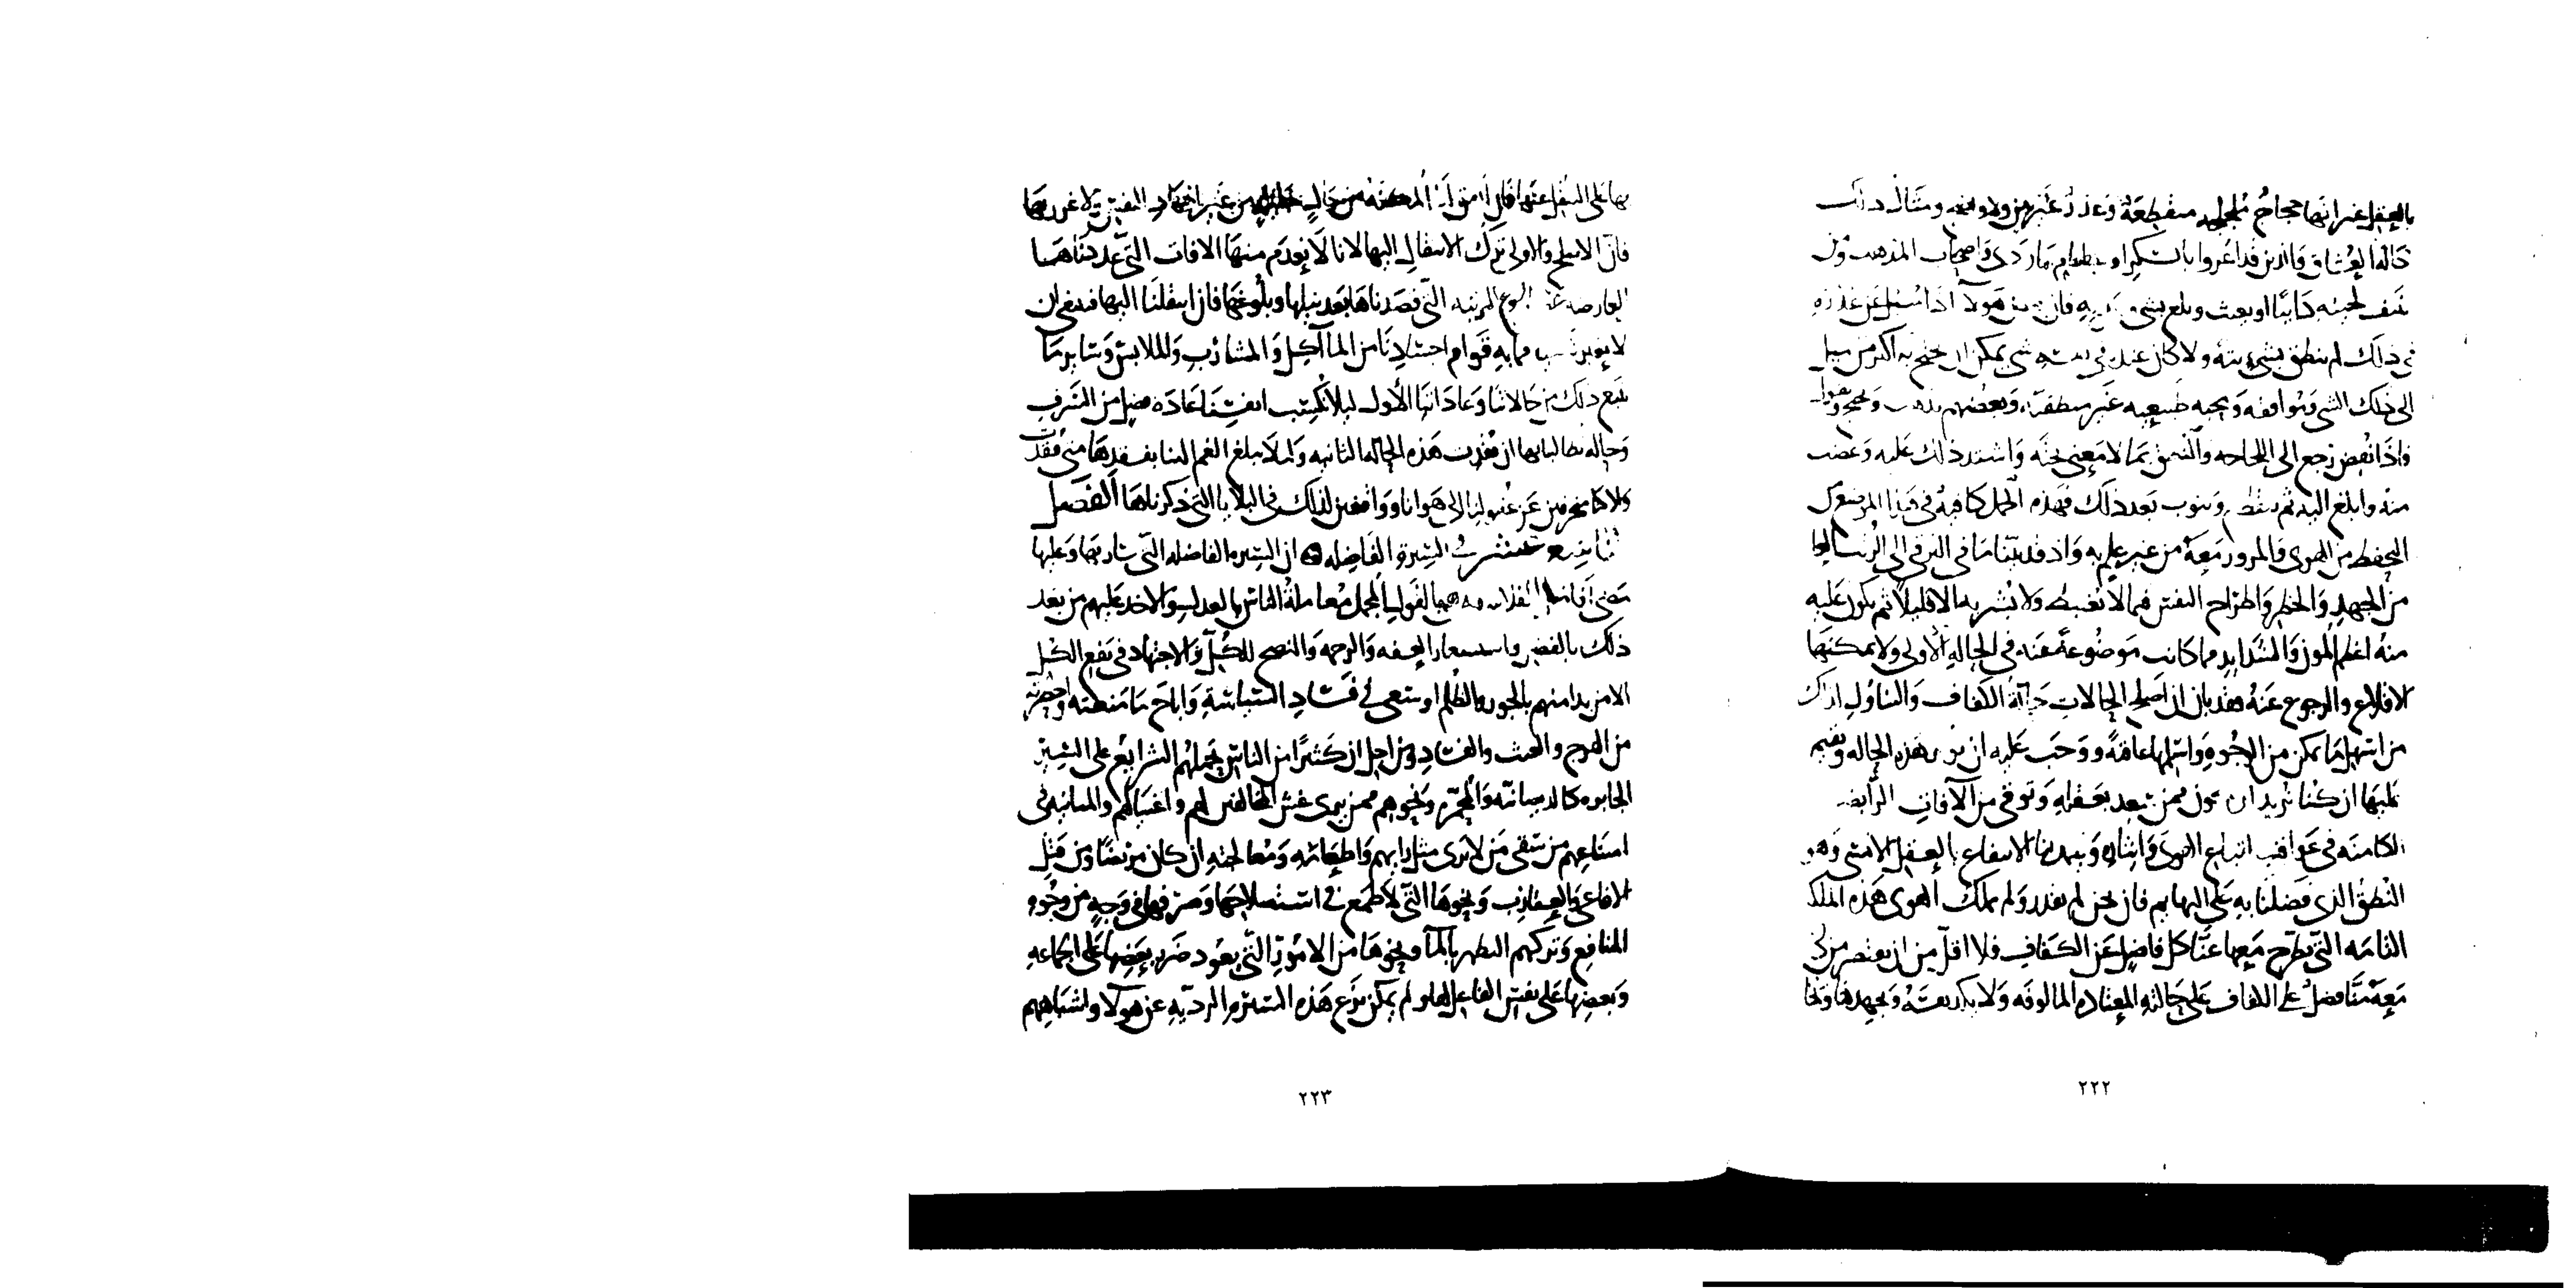 بالعقل غير انها حجاج ملجلجه منقطعة وعذر غير بين ولا واضح ومثال ذلك
حالة العشاق والذين قد اغروا بالسكر او بطعام ما ردى واصحاب المذهب ومن
ينتف لحيته دايبا او يعبث ويلع بشى من بدنه فان بعض هولآ اذا سئل عن عذره
فى ذلك لم ينطق بشىء بتة ولا كان عنده فى نفسه شى يمكن ان يحتج به اكثر من ميل
الى ذلك الشى وموافقه ومحبه طبيعيه غير منطقية وبعضهم يذهب ويحتج ويقول
واذا نقض رجع الى اللجاجه والتعلق بما لا معنى تحته واشتد ذلك عليه وغضب
منه وابلغ اليه ثم ينقطع ويثوب بعد ذلك فهذه الجمل كافية فى هذا الموضع من
التحفظ من الهوى والمرور معه من غير علم به واذ قد بينا ما فى الترقى الى الرتب العليا
من الجهد والخطر واطراح النفس فيما لا تغتبط ولا تسر به الا قليلا ثم يكون عليه
منه اعظم المؤن والشدايد مما كانت موضوعة عنه فى الحالة الاولى ولا يمكنها
الاقلاع والرجوع عنه فقد بان ان اصلح الحالات حالة الكفاف والتناول لذلك
من اسهل ما يمكن من الوجوه واسلمها عاقبةً ووجب عليه ان نوثر هذه الحاله ونقيم
عليها ان كنا نريد ان نكون ممن سعد بعقله وتوقى من الآفات الرابضه
الكامنه فى عواقب اتباع الهوى وايثاره ويهدينا الانتفاع بالعقل الانسى وهو
النطق الذى فضلنا به على البهايم فان نحن لم نقدر ولم نملك الهوى هذه الملكه
التامه التى نطرح معها عنا كل فاضل عن الكفاف فلا اقل من ان يقتصر من كان
معه منا فضل على الكفاف على حالته المعتاده المالوفه ولا يكد نفسه ويجهدها ويخا
٢٢٢
بها على التنقل عنها فان اتفق لنا المكنه من حال جليله من غير اجهاد النفس ولا غرر بها
فان الاصلح والاولى ترك الانتقال اليها لانا لا نعدم منها الافات التى عددناها
العارضه عن بلوع المرتبه التى قصدناها بعد نيلها وبلوغها فان انتقلنا اليها فينبغى ان
لا نغير شيا مما به قوام اجسادنا من المآكل والمشارب والملابس وساير ما
يتبع ذلك من حالاتنا وعاداتنا الأول ليلا تكتسب انفسنا عادة فضل من السرف
وحاله تطالبنا بها ان فقدت هذه الحاله الثانيه وليلا يبلغ الغم الينا بفقدها متى فقدت
والا كنا منحرفين عن عقولنا الى هوانا وواقعين لذلك فى البلايا التى ذكرناها الفصل
التاسع عشر فى السيرة الفاضله ان السيره الفاضله التى سار بها وعليها
مضى افاضل الفلاسفه هى بالقول المجمل معاملة الناس بالعدل والاخذ عليهم من بعد
ذلك بالفضل واستشعار العفه والرحمه والنصح للكل والاجتهاد فى نفع الكل
الا من بدا منهم بالجور والظلم او سعى فى فساد السياسة واباح ما منعته وحظرته
من الهرج والعبث والفساد ومن اجل ان كثيرًا من الناس تحملهم الشرايع على السير
الجايره كالديصانيه والمحمره ونحوهم ممن يرى غش المخالفين لهم واغتيالهم والمنانيه فى
امتناعهم من سقى من لا يرى مثل رايهم واطعامه ومعالجته ان كان مريضًا ومن قتل
الافاعى والعقارب ونحوها التى لا طمع فى استصلاحها وصرفها فى وجه من وجوه
المنافع وتركهم التطهر بالمآ ونحوها من الامور التى يعود ضرر بعضها على الجماعه
وبعضها على نفس الفاعل لها ولم يمكن نزع هذه السيره الرديه عن هولآ واشباههم
٢٢٣